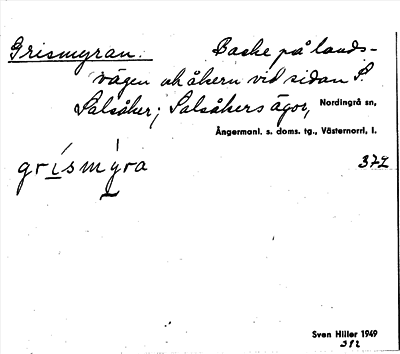 Grismyran. Backe på lands-
vägen och åkern vid sidan S.
Salsåker; Salsåkers ägor, Nordingrå sn,
Ångermanl. s. doms. tg., Västernorrl. l.
grísmýra 372
Sven Hiller 1949
382